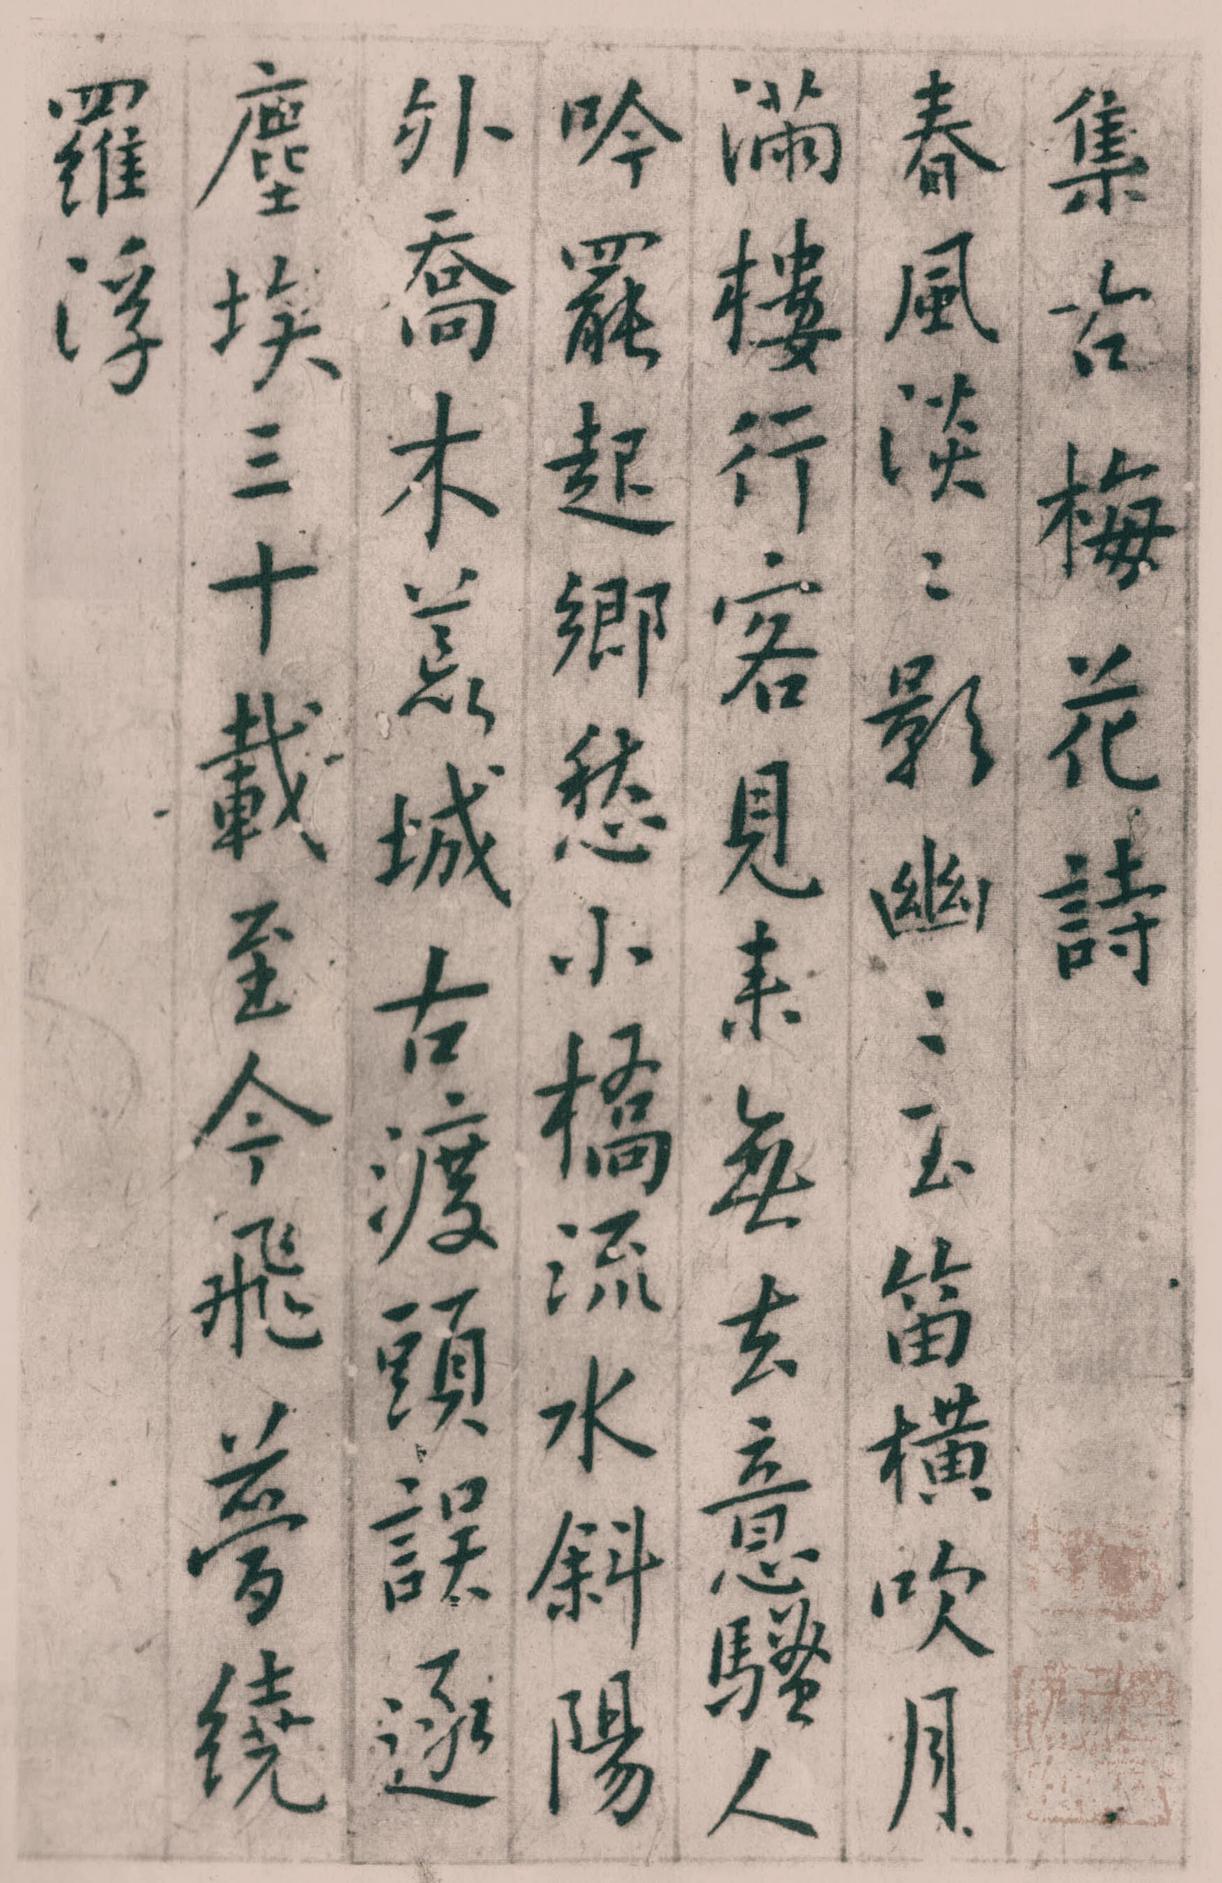 集古梅花詩
春風淡〻影幽〻玉笛横吹月
滿樓行客見来無去意騷人
吟罷起鄉愁小橋流水斜陽
外喬木荒城古渡頭誤逐
塵埃三十載至今飛夢繞
羅浮